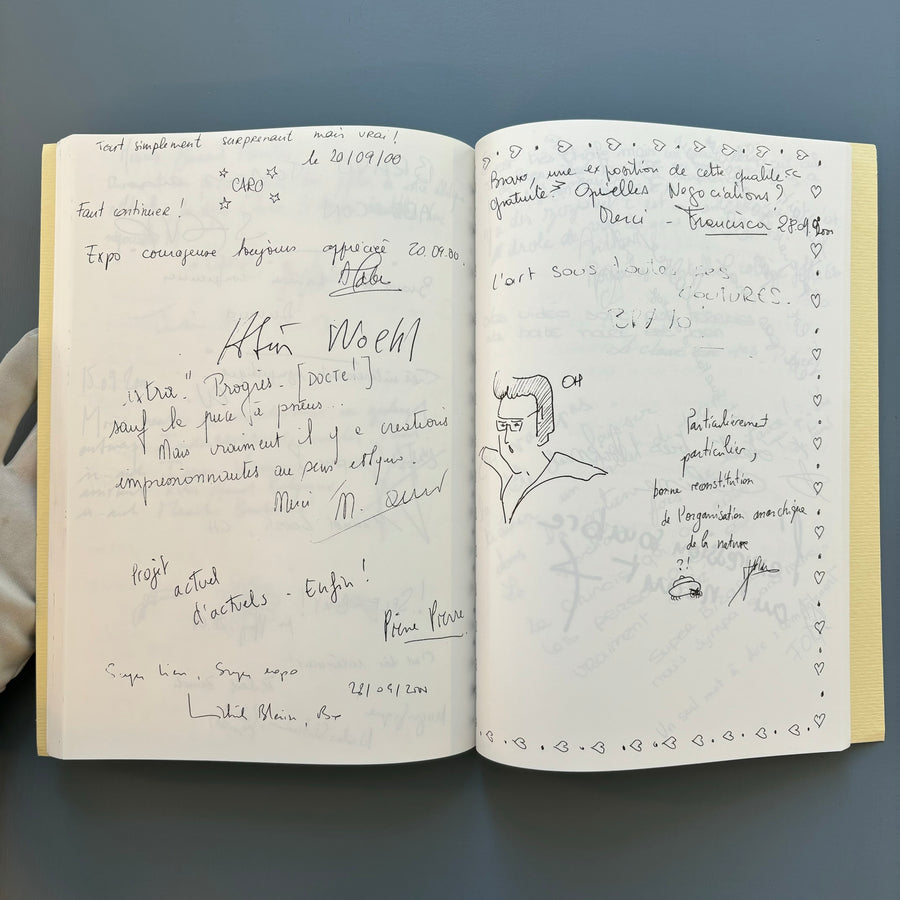 Tout simplement surprenant mais vrai !
le 20/09/00
CARO
Faut continuer !
Expo courageuse toujours appréciée 20.09.00.
Woehl
"extra" Progrès. [DOCTE!]
sauf la pièce à pneus...
Mais vraiment il y a créations
impressionnantes au sens
Merci M.
Projet
actuel
d'actuels - Enfin !
Pierre Pierre
Super lieu, Super expo
28/09/2000
Bravo, une exposition de cette qualité <<
gratuite >> Quelles Négociations ?
Merci - Francisca 28.09.2000
L'art sous toutes ses
COUTURES.
BRAVO
OH
Particulièrement
particulier,
bonne reconstitution
de l'organisation anarchique
de la nature
?!